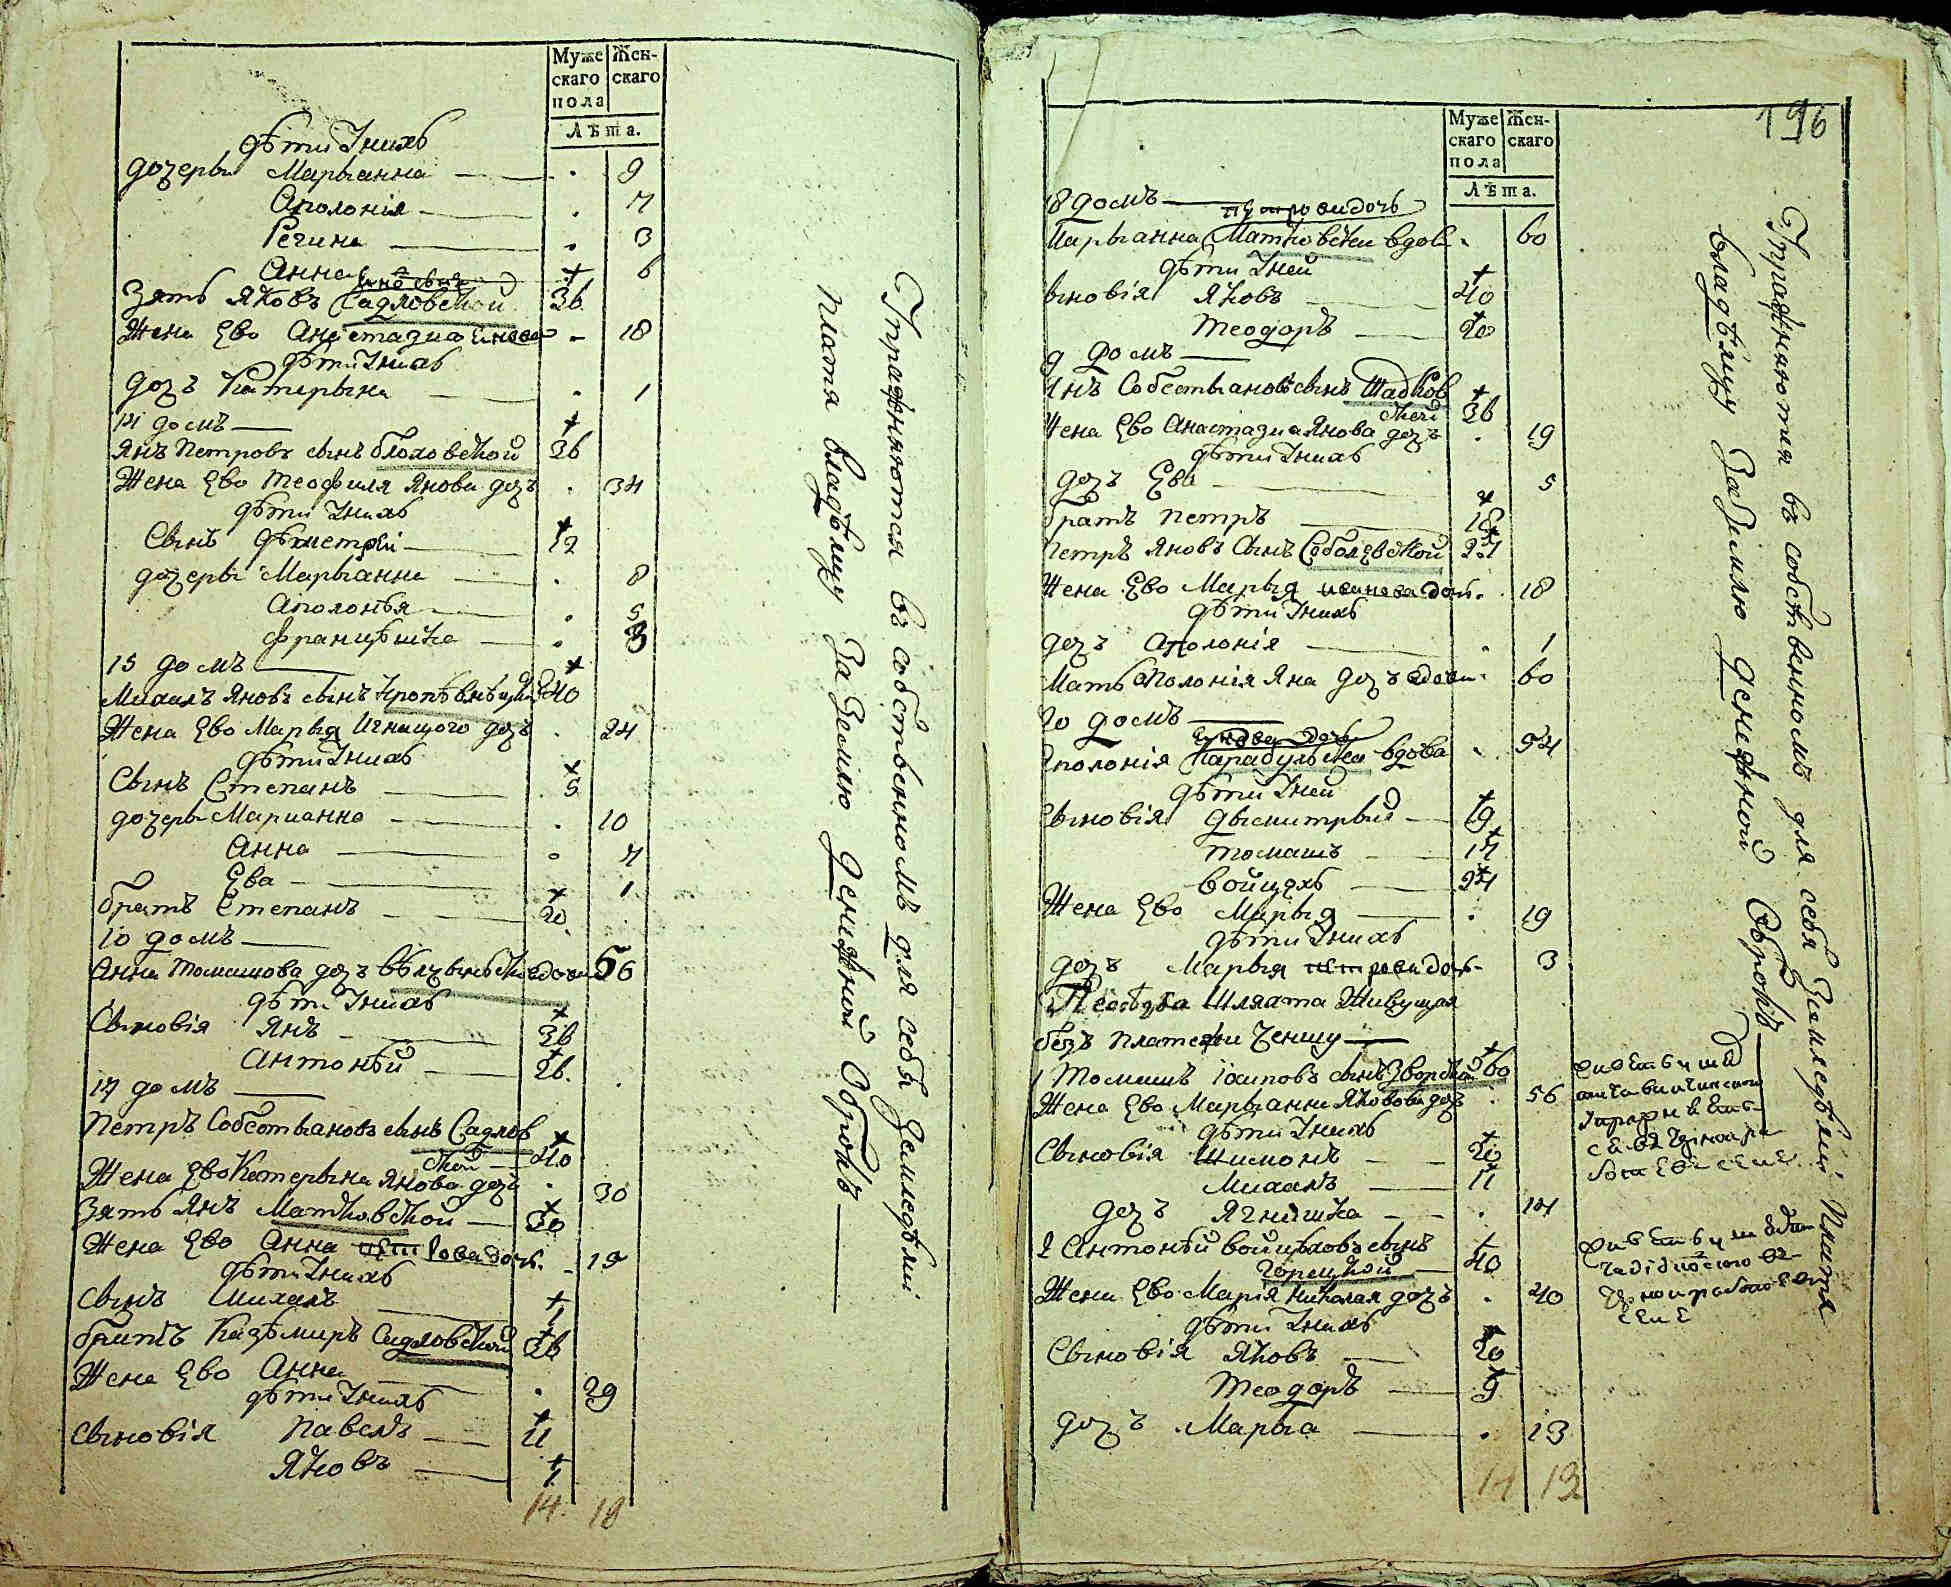 Муже Жен-
скаго скаго
пола
Лѣта.
дѣти Ӡнихъ
дочеры Марыанна 9
Аполонія 7
Регина 3
Анна 6
Зять Яковъ Садловской 36
Жена Ево Анастазиа 18
дѣти Ӡнихъ
дочъ Катерына 1
14 домъ
Янъ Петровъ сынъ Блоховской 36
Жена Ево Теофиля Янова дочъ 34
дѣти Ӡнихъ
Сынъ Дѣметрѣй 12
дочеры Марыанна 8
Аполонья 5
Францѣшка 3
15 домъ
Михалъ Яновъ сынъ 40
Жена Ево Марыя Игнацого дочъ 24
дѣти Ӡнихъ
Сынъ Степанъ 5
дочеры Марианна 10
Анна 7
Ева 1
братъ Степанъ 20
10 домъ
Анна Томашова дочъ 56
дѣти Ӡнихъ
Сыновія Янъ 36
Антонѣй 26
17 домъ
Петръ Собестыановъ сынъ Садлов
ской 40
Жена Ево Катерына Янова дочъ 30
Зять Янъ Матковской 30
Жена Ево Анна Петрова дочь 19
дѣти Ӡнихъ
Сынъ Михалъ 1
братъ Казѣмиръ Садловской 36
Жена Ево Анна 29
дѣти Ӡнихъ
Сыновія Павелъ 11
Яковъ 1
14 18
Ӡпражняются въ собственномъ для себя Земледѣліи
платя владѣлцу За Землю денежной Оброкъ
196
Муже Жен-
скаго скаго
пола
Лѣта.
18 домъ
петрова дочь
Марыанна Матковска вдова 60
дѣти Ӡней
Сыновія Яковъ 40
Теодоръ 20
19 домъ
Янъ Собестыановъ сынъ Шадков
ской 36
Жена Ево Анастазиа Янова дочъ 19
дѣти Ӡнихъ
дочъ Ева 5
братъ Петръ 18
Петръ Яновъ Сынъ Соболевской 24
Жена Ево Марыя иванова дочь 18
дѣти Ӡнихъ
дочъ Аполонія 1
Мать Аполонія Яна дочъ вдова 60
20 домъ
янова дочь
Аполонія Карабулска вдова 54
дѣти Ӡней
Сыновія Дысмитрый 19
Томашъ 17
Войцехъ 24
Жена Ево Марыя 19
дѣти Ӡнихъ
дочъ Марыя 3
Шляхта Живущая
безъ платежи Чениу
1 Томашъ Іосиповъ сынъ 60
Жена Ево Марыанна Яковова дочъ 56
дѣти Ӡнихъ
Сыновія Шимонъ 20
Михалъ 11
дочъ Ягнишка 14
2 Антонѣй Войцѣховъ сынъ
Горецкой 40
Жена Ево Марія Николая дочъ 40
дѣти Ӡнихъ
Сыновія Яковъ 20
Теодоръ 9
дочъ Марыа 13
14 13
Ӡпражняются въ собственномъ для себя Земледѣліи платя
владѣлцу За Землю денежной Оброкъ